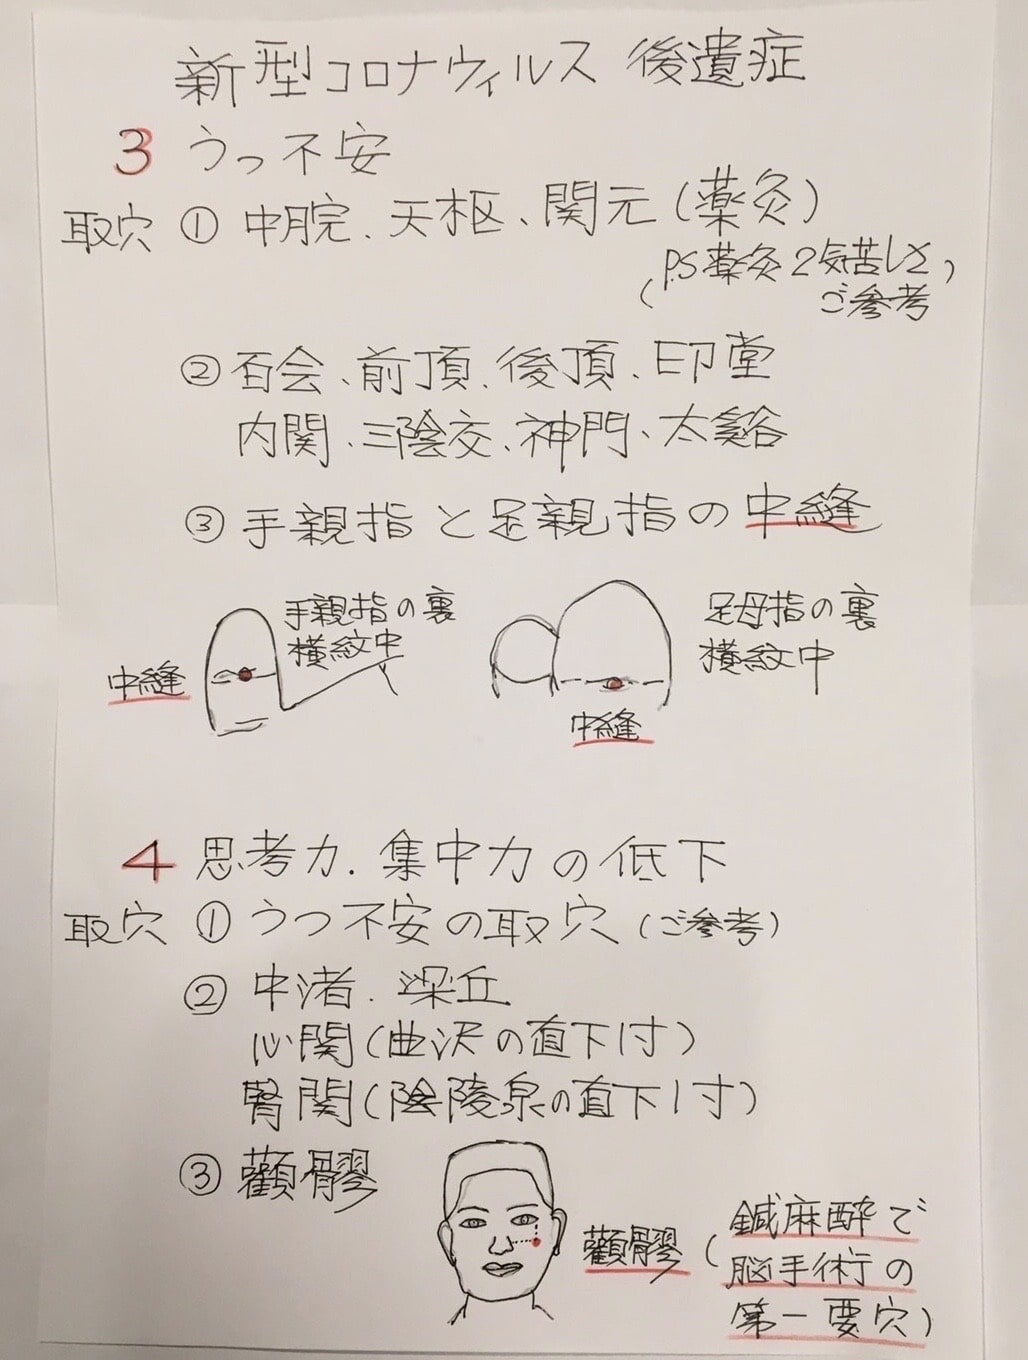 新型コロナウィルス 後遺症
3 うつ不安
取穴 ① 中脘、天枢、関元(薬灸)
(P.S薬灸2気苦しと
ご参考)
② 百会、前頂、後頂、印堂
内関、三陰交、神門、太谿
③ 手親指と足親指の中縫
手親指の裏
横紋中
中縫
足母指の裏
横紋中
中縫
4 思考力.集中力の低下
取穴 ① うつ不安の取穴(ご参考)
② 中渚.梁丘
心関(曲沢の直下1寸)
腎関(陰陵泉の直下1寸)
③ 顴髎
顴髎
(鍼麻酔で
脳手術の
第一要穴)